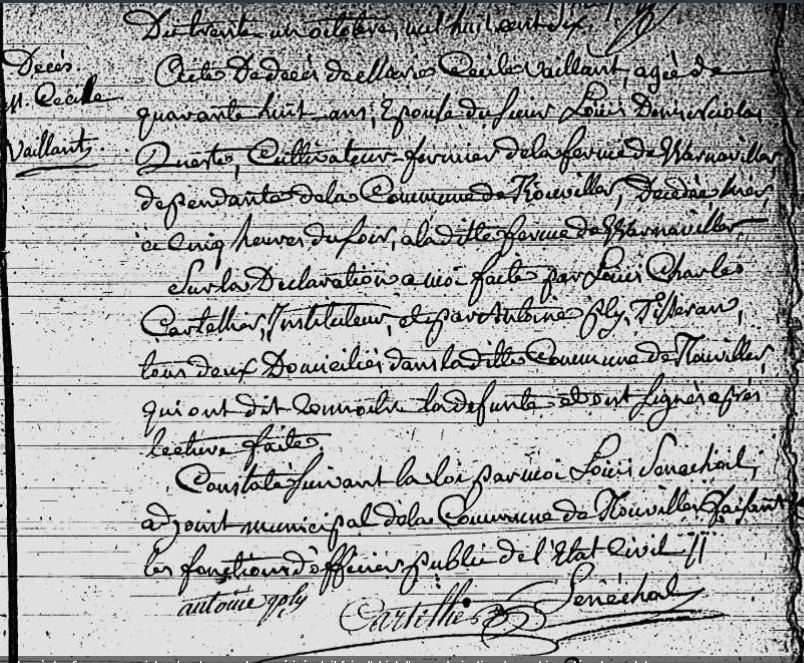 Du trente un octobre, mil huit cent dix.
Décès.
M. Cecile
Vaillant.
Acte De decès de Marie Cecile Vaillant, agée de
quarante huit ans, Epouse du sieur Louis Denis Nicolas
Cultivateur fermier dela ferme de Warnaviller
dependante dela Commune de Rouviller, Decedée hier,
à Cinq heures du soir, a la ditte ferme de Warnaviller,
Sur la Declaration a moi faite par Louis Charles
Cartelhier, Instituteur, et par Antoine ply, Tisseran,
tous deux Domiciliés dans la ditte Commune de Rouviller,
qui ont dit Connoitre la defunte et ont Signés après
lecture faite
Constaté suivant la loi par moi Louis Senechal,
adjoint municipal dela Commune de Rouviller, faisant
les fonctions d'officier public de l'Etat Civil //
antoine ply Cartilhier Senéchal